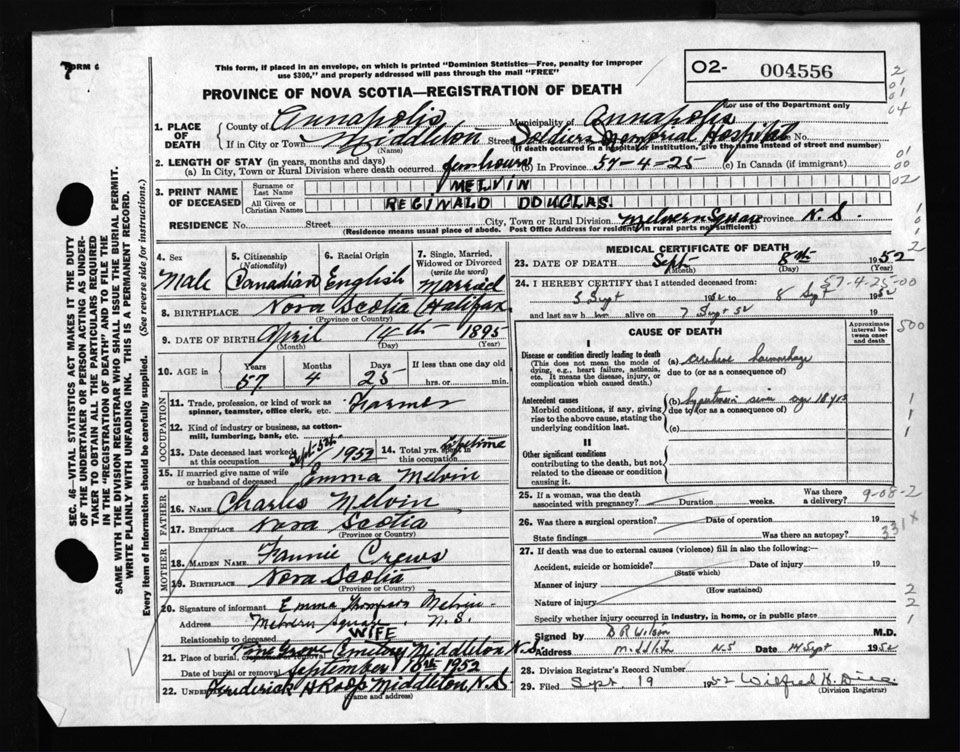 FORM 6
7
This form, if placed in an envelope, on which is printed "Dominion Statistics—Free, penalty for improper
use $300," and properly addressed will pass through the mail "FREE"
PROVINCE OF NOVA SCOTIA—REGISTRATION OF DEATH
02- 004556
For use of the Department only
2
01
01
04
1. PLACE OF DEATH
County of Annapolis Municipality of Annapolis
If in City or Town Middleton Street Soldiers Memorial Hospital No.
(Name) (If death occurred in a hospital or institution, give the name instead of street and number)
2. LENGTH OF STAY (in years, months and days)
(a) In City, Town or Rural Division where death occurred few hours (b) In Province 57-4-25 (c) In Canada (if immigrant)
01
00
02
3. PRINT NAME OF DECEASED
Surname or Last Name MELVIN
All Given or Christian Names REGINALD DOUGLAS.
RESIDENCE No. Street City, Town or Rural Division Melvern Square Province N.S.
(Residence means usual place of abode. Post Office Address for residents in rural parts not sufficient)
SEC. 46—VITAL STATISTICS ACT MAKES IT THE DUTY
OF THE UNDERTAKER OR PERSON ACTING AS UNDER-
TAKER TO OBTAIN ALL THE PARTICULARS REQUIRED
IN THE "REGISTRATION OF DEATH" AND TO FILE THE
SAME WITH THE DIVISION REGISTRAR WHO SHALL ISSUE THE BURIAL PERMIT.
WRITE PLAINLY WITH UNFADING INK. THIS IS A PERMANENT RECORD.
Every item of Information should be carefully supplied. (See reverse side for instructions.)
4. Sex Male
5. Citizenship (Nationality) Canadian
6. Racial Origin English
7. Single, Married, Widowed or Divorced (write the word) Married
8. BIRTHPLACE Nova Scotia Halifax
(Province or Country)
9. DATE OF BIRTH April 14th 1895
(Month) (Day) (Year)
10. AGE in Years 57 Months 4 Days 25 If less than one day old
hrs. or min.
OCCUPATION
11. Trade, profession, or kind of work as
spinner, teamster, office clerk, etc. Farmer
12. Kind of industry or business, as cotton-
mill, lumbering, bank, etc.
13. Date deceased last worked at this occupation Sept 5th 1952
14. Total yrs. spent in this occupation Lifetime
15. If married give name of wife
or husband of deceased Emma Melvin
FATHER
16. NAME Charles Melvin
17. BIRTHPLACE Nova Scotia
(Province or Country)
MOTHER
18. MAIDEN NAME Fannie Crews
19. BIRTHPLACE Nova Scotia
(Province or Country)
20. Signature of informant Emma Thompson Melvin
Address Melvern Square N.S.
Relationship to deceased WIFE
21. Place of burial, Pine Grove Cemetery Middleton N.S.
Date of burial or removal September 10th 1952
22. Frederick A Roop Middleton, N.S
(Name and address)
MEDICAL CERTIFICATE OF DEATH
23. DATE OF DEATH Sept 8th 1952
(Month) (Day) (Year)
24. I HEREBY CERTIFY that I attended deceased from: 57-4-25-00
3 Sept 1952 to 8 Sept 1952
and last saw h im alive on 7 Sept 52 19
CAUSE OF DEATH
Approximate interval between onset and death
500
I
Disease or condition directly leading to death
(This does not mean the mode of
dying, e.g., heart failure, asthenia,
etc. It means the disease, injury, or
complication which caused death.)
(a) Cerebral haemorrhage
due to (or as a consequence of)
Antecedent causes
Morbid conditions, if any, giving
rise to the above cause, stating the
underlying condition last.
(b)
due to (or as a consequence of)
(c)
II
Other significant conditions
contributing to the death, but not
related to the disease or condition
causing it.
25. If a woman, was the death
associated with pregnancy? Duration weeks. Was there a delivery?
9-08-2
26. Was there a surgical operation? Date of operation 19
State findings Was there an autopsy?
331X
27. If death was due to external causes (violence) fill in also the following:—
Accident, suicide or homicide? Date of injury 19
(State which)
Manner of injury
(How sustained)
Nature of injury
Specify whether injury occurred in industry, in home, or in public place
Signed by D R Wilson M.D.
Address Middleton NS Date 14 Sept 1952
28. Division Registrar's Record Number
29. Filed Sept. 19 1952 Wilfred
(Division Registrar)